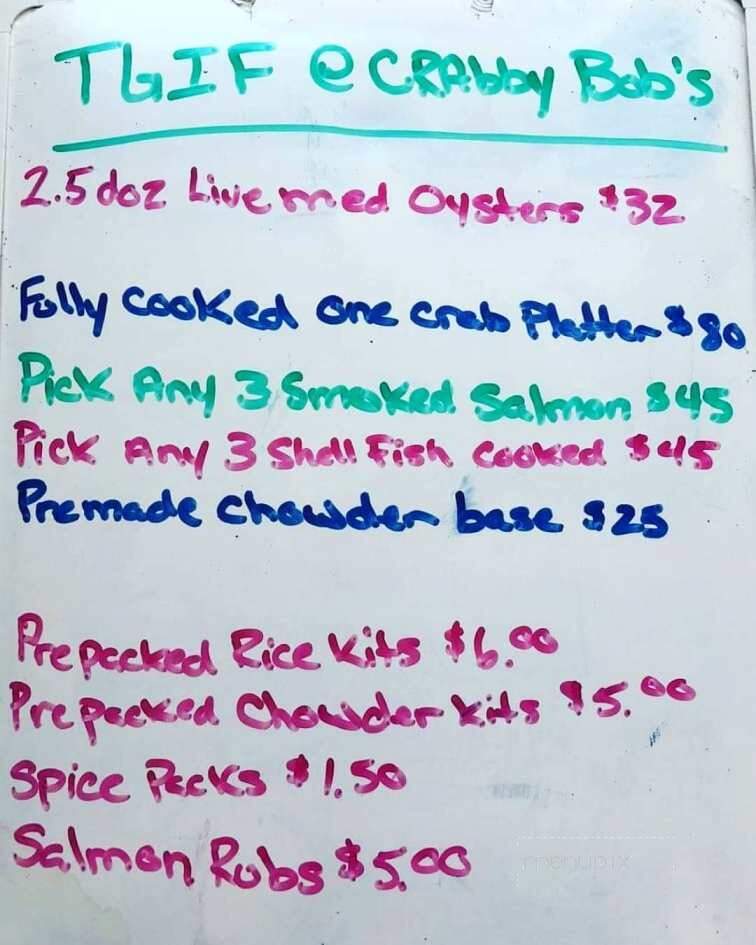 TGIF @ CRAbby Bob's
2.5 doz Live med Oysters $32
Fully cooked one crab Platter $80
Pick Any 3 Smoked Salmon $45
Pick Any 3 Shell Fish cooked $45
Premade chowder base $25
Prepacked Rice Kits $6.00
Prepacked Chowder kits $5.00
Spice Packs $1.50
Salmon Rubs $5.00
menupix